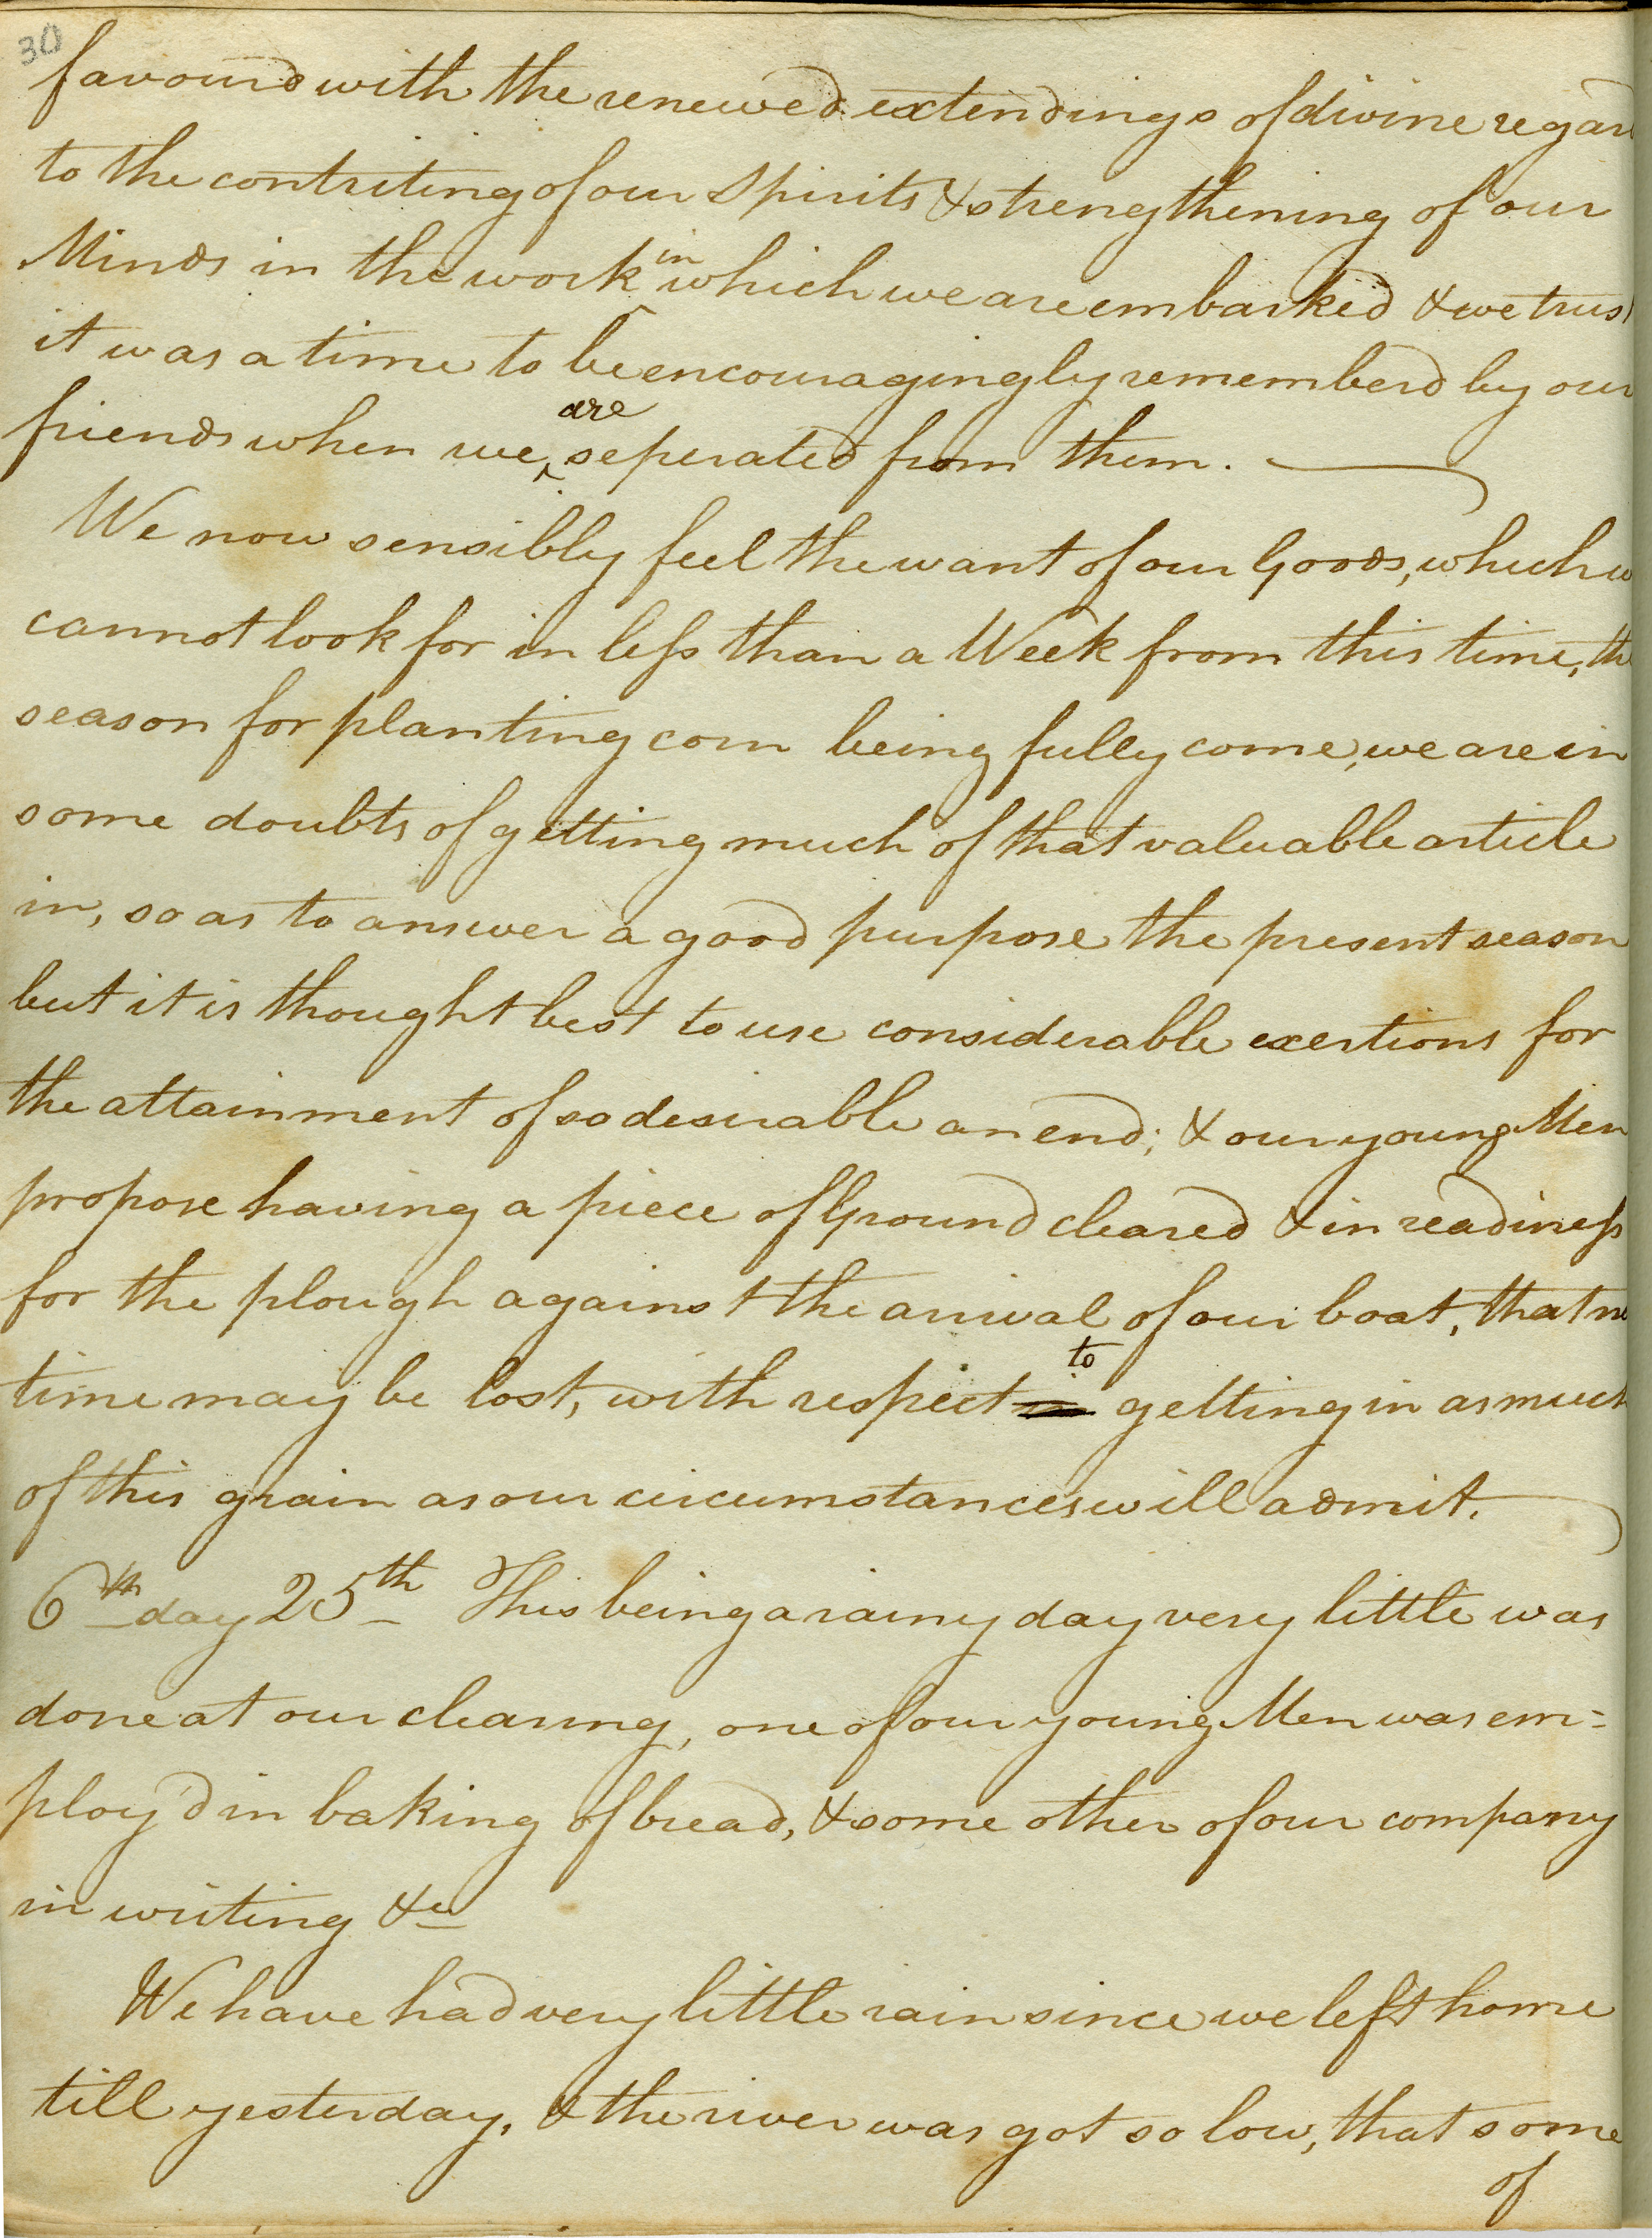 30
favourd with the renewed extendings of divine regard
to the contriting of our Spirits & strengthening of our
Minds in the work in which we are embarked & we trust
it was a time to be encouragingly rememberd by our
friends when we are seperated from them.
We now sensibly feel the want of our Goods, which w
cannot look for in less than a Week from this time, the
season for planting corn being fully come, we are in
some doubts of getting much of that valuable article
in, so as to answer a good purpose the present season
but it is thought best to use considerable exertions for
the attainment of so desirable an end; & our young Men
propose having a piece of Ground cleared & in readiness
for the plough against the arrival of our boat, that no
time may be lost, with respect to getting in as much
of this grain as our circumstances will admit.
6th day 25th This being a rainy day very little was
done at our clearing, one of our young Men was em=
ploy'd in baking of bread, & some other of our company
in writing &c
We have had very little rain since we left home
till yesterday, & the river was got so low, that some
of